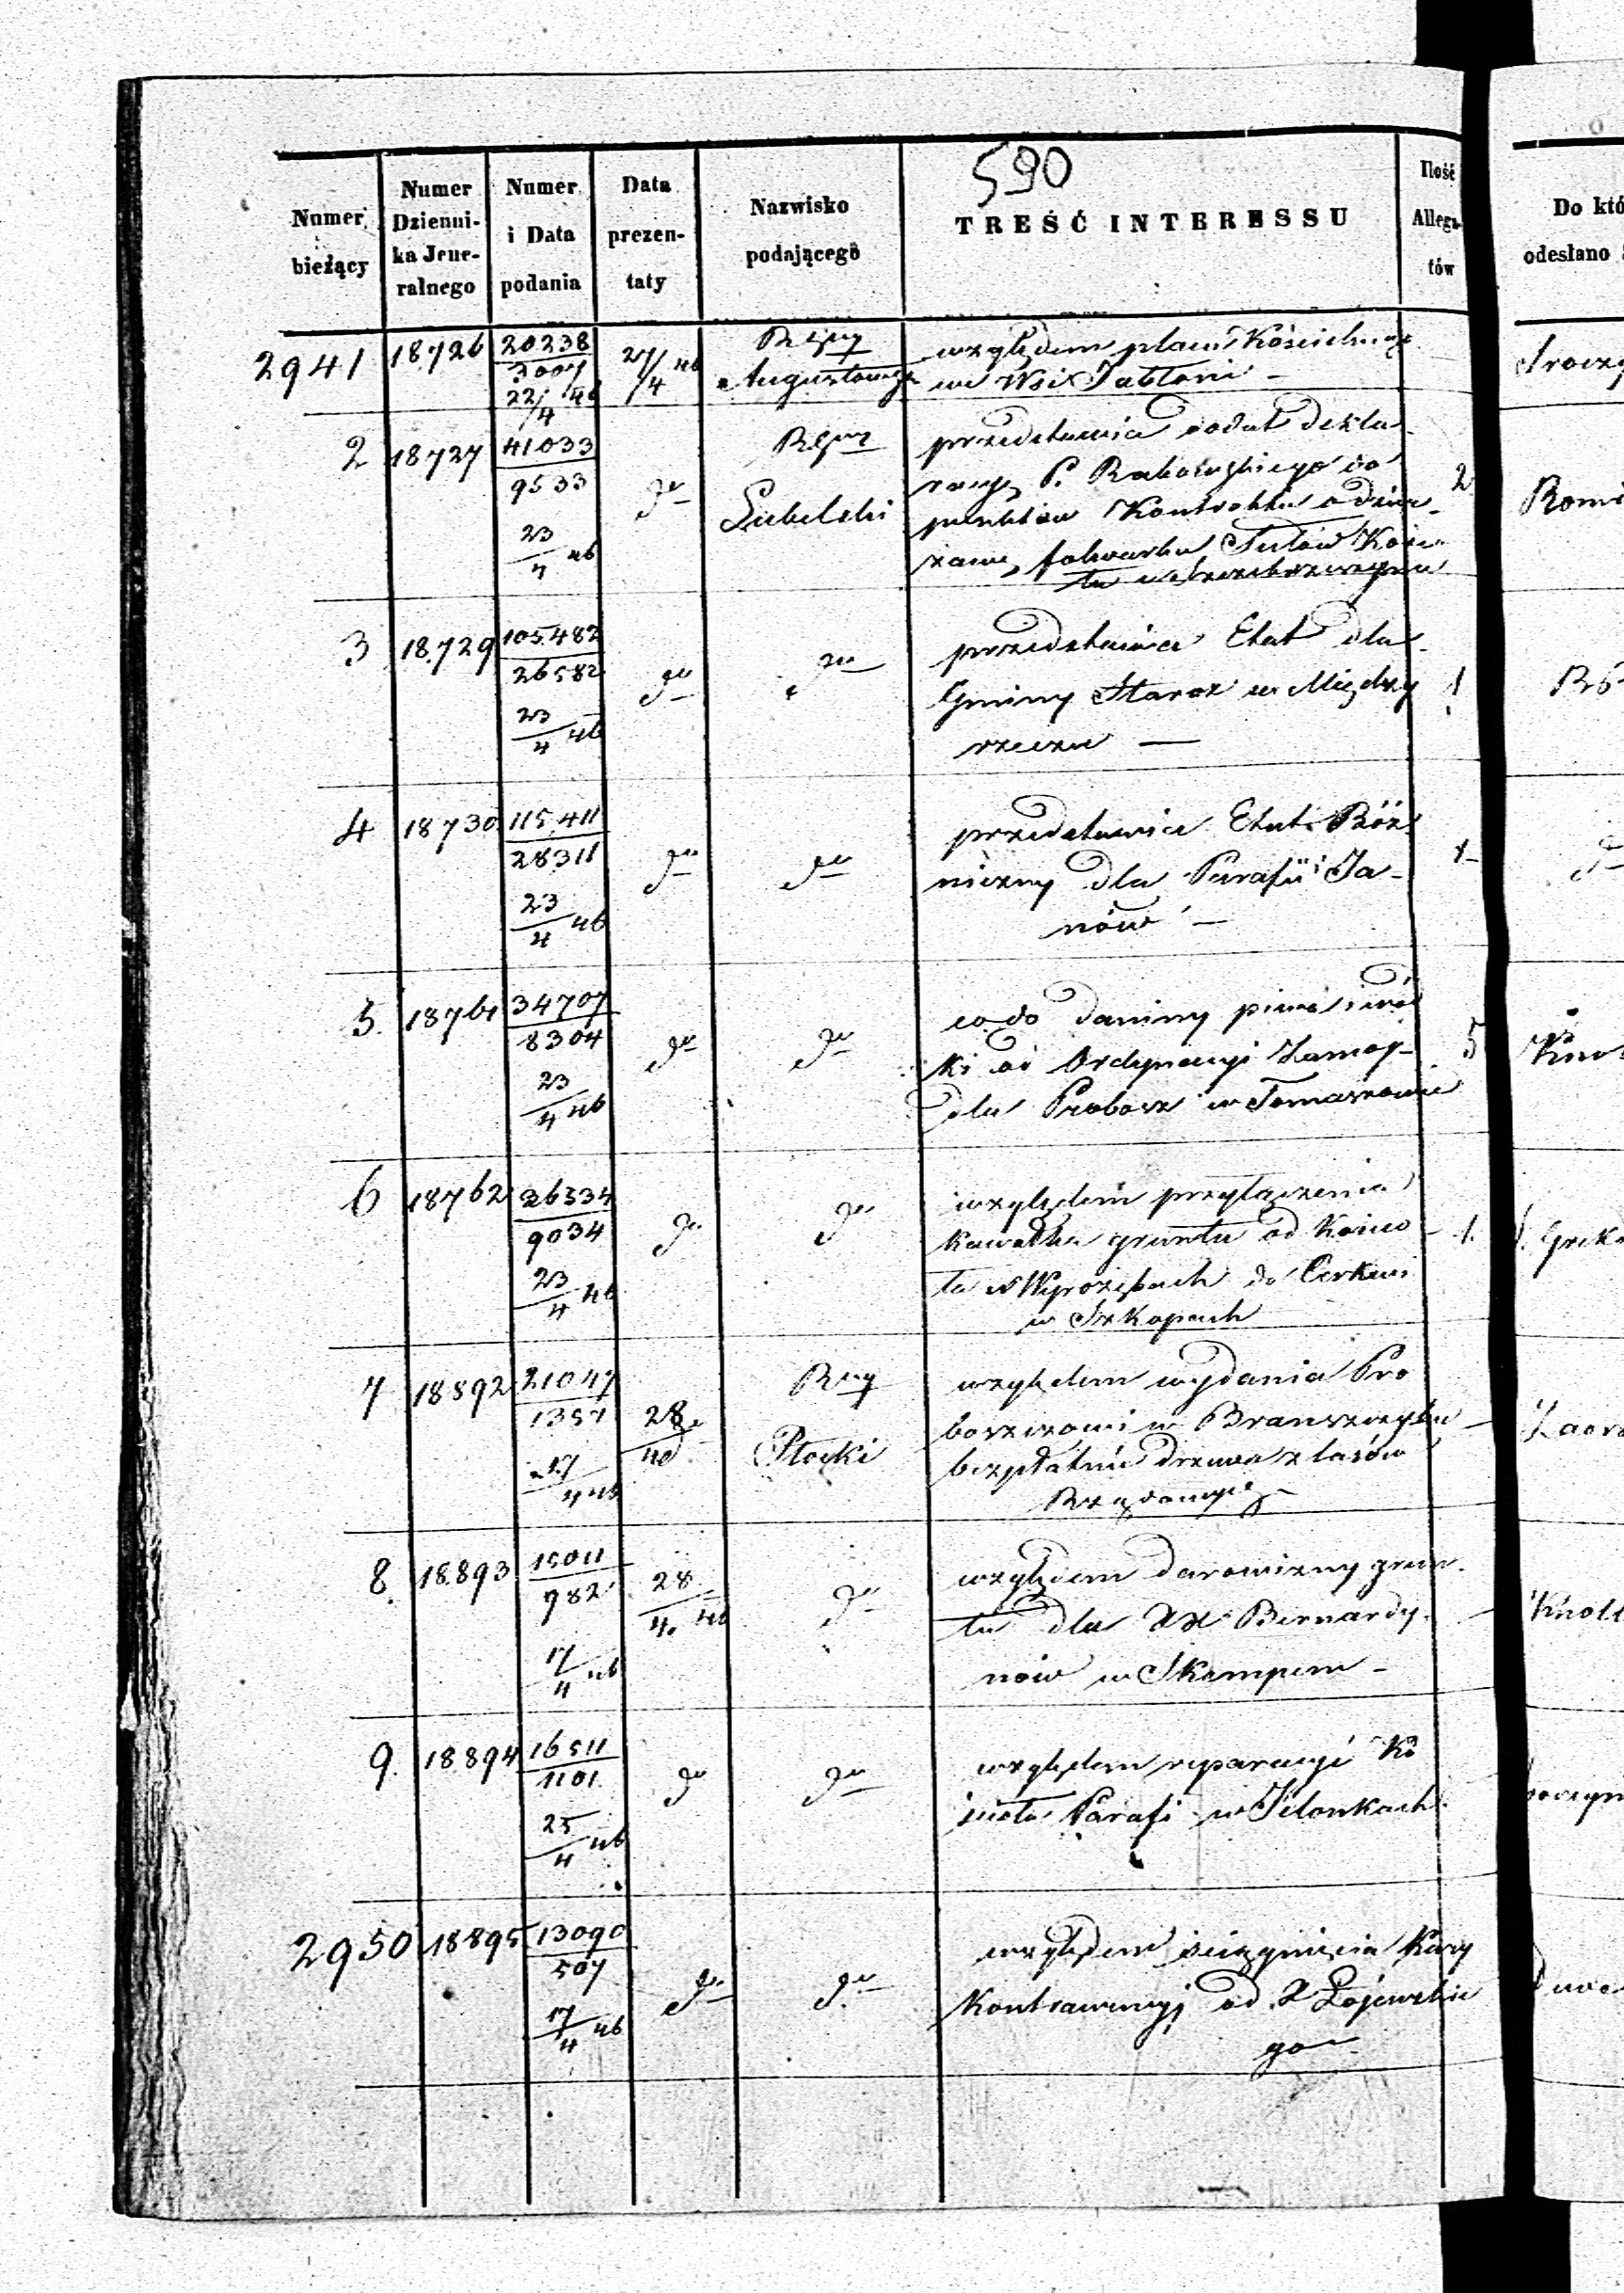 590
Numer bieżący
Numer Dziennika Jeneralnego
Numer i Data podania
Data prezentaty
Nazwisko podającego
TREŚĆ INTERESSU
Ilość Allegatów
Do któ
odesłano
2941 18726 20238
3007
22/4 46
27/4 46
Augustowski
względem placu Kościelnego
we Wsi Jabłoni –
2 18727 41033
9533
23/4 46
do
Lubelski
przedstawia
P.
do
punktów Kontraktu o dzier
żawę folwarku
w Szczebrzeszynie
2
3 18.729 105.482
26582
23/4 46
do
do
przedstawia Etat dla
Gminy Staroz w Między
rzeczu —
1
4 18730 115.411
28311
23/4 46
do
do
przedstawia Etat Bóż
niczny dla Parafii Ja-
nów –
1
5. 18761 34707
8304
23/4 46
do
do
co do daniny piwa i wód
ki od Ordynacyi Zamoj-
dla Probosz w Tomaszowie
5
6 18762 36334
9034
23/4 46
do
do
względem przyłączenia
Kawałka gruntu od Kościo
ła w Wyrozębach do Cerkwi
w Szkopach
1.
7 18892 21047
1357
17/4 46
28/4
Płocki
względem wydania Pro
boszczowi w Branszczyku
bezpłatnie drzewa z lasów
Rządowych
8. 18.893 15011
982
17/4 46
28/4 46
do
względem darowizny grun
tu dla XX Bernardy
nów w Skempem –
9. 18894 16511
1101
25/4 46
do
do
względem reparacyi Ko
ścioła Parafi w Jelonkach
2950 18895 13090
507
17/4 46
do
do
względem ściągnięcia Kary
Kontrawencyj od X Łojewskie
go